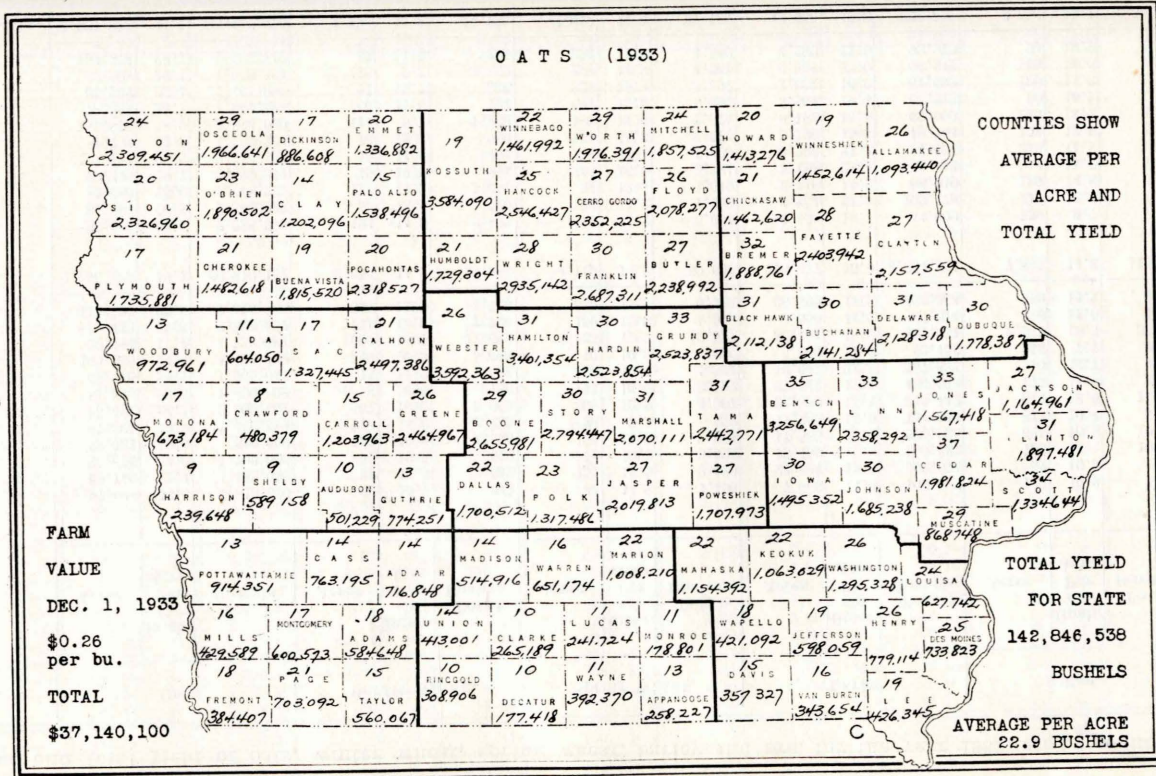 OATS (1933)
COUNTIES SHOW
AVERAGE PER
ACRE AND
TOTAL YIELD
24 LYON 2,309,451
29 OSCEOLA 1,966,641
17 DICKINSON 886,608
20 EMMET 1,336,882
19 KOSSUTH 3,584,090
22 WINNEBAGO 1,461,992
29 WORTH 1,976,391
24 MITCHELL 1,857,525
20 HOWARD 1,413,276
19 WINNESHIEK 1,452,614
26 ALLAMAKEE 1,093,440
20 SIOUX 2,326,960
23 O'BRIEN 1,890,502
14 CLAY 1,202,096
15 PALO ALTO 1,538,496
25 HANCOCK 2,546,427
27 CERRO GORDO 2,352,225
26 FLOYD 2,078,277
21 CHICKASAW 1,462,620
28 FAYETTE 2,403,942
27 CLAYTON 2,157,559
17 PLYMOUTH 1,735,881
21 CHEROKEE 1,482,618
19 BUENA VISTA 1,815,520
20 POCAHONTAS 2,318,527
21 HUMBOLDT 1,729,304
28 WRIGHT 2,935,142
30 FRANKLIN 2,687,311
27 BUTLER 2,238,992
32 BREMER 1,888,761
13 WOODBURY 972,961
11 IDA 604,050
17 SAC 1,327,445
21 CALHOUN 2,497,386
26 WEBSTER 3,592,363
31 HAMILTON 3,401,354
30 HARDIN 2,523,854
33 GRUNDY 2,523,837
31 BLACK HAWK 2,112,138
30 BUCHANAN 2,141,284
31 DELAWARE 2,128,318
30 DUBUQUE 1,778,387
17 MONONA 1,673,184
8 CRAWFORD 480,379
15 CARROLL 1,203,963
26 GREENE 2,464,967
29 BOONE 2,655,981
30 STORY 2,794,447
31 MARSHALL 2,070,111
31 TAMA 2,442,771
35 BENTON 3,256,649
33 LINN 2,358,292
33 JONES 1,567,418
27 JACKSON 1,164,961
31 CLINTON 1,897,481
9 HARRISON 239,648
9 SHELBY 589,158
10 AUDUBON 501,229
13 GUTHRIE 774,251
22 DALLAS 1,700,512
23 POLK 1,317,486
27 JASPER 2,019,813
27 POWESHIEK 1,707,973
30 IOWA 1,495,352
30 JOHNSON 1,685,238
37 CEDAR 1,981,824
34 SCOTT 1,334,644
29 MUSCATINE 868,748
13 POTTAWATTAMIE 914,351
14 CASS 763,195
14 ADAIR 716,848
14 MADISON 514,916
16 WARREN 651,174
22 MARION 1,008,210
22 MAHASKA 1,154,392
22 KEOKUK 1,063,029
26 WASHINGTON 1,295,328
24 LOUISA 627,742
16 MILLS 429,589
17 MONTGOMERY 600,573
18 ADAMS 584,648
14 UNION 413,001
10 CLARKE 265,189
11 LUCAS 241,724
11 MONROE 178,801
18 WAPELLO 421,092
19 JEFFERSON 598,059
26 HENRY 779,114
25 DES MOINES 733,823
18 FREMONT 384,407
21 PAGE 703,092
15 TAYLOR 560,067
10 RINGGOLD 308,906
10 DECATUR 177,418
11 WAYNE 392,370
13 APPANOOSE 258,227
15 DAVIS 357,327
16 VAN BUREN 343,654
19 LEE 426,345
FARM
VALUE
DEC. 1, 1933
$0.26
per bu.
TOTAL
$37,140,100
TOTAL YIELD
FOR STATE
142,846,538
BUSHELS
AVERAGE PER ACRE
22.9 BUSHELS
C